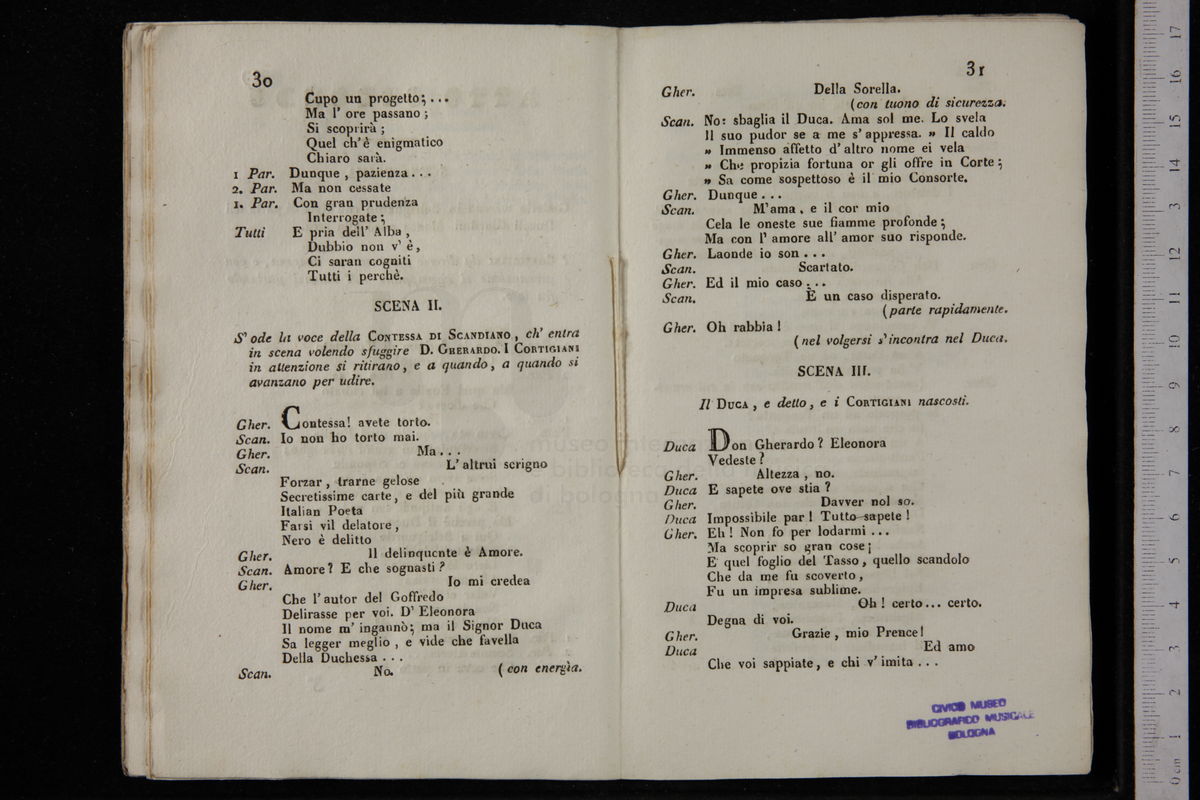 30
Cupo un progetto; ...
Ma l' ore passano ;
Si scoprirà ;
Quel ch'è enigmatico
Chiaro sarà.
1 Par. Dunque , pazienza . . .
2. Par. Ma non cessate
1. Par. Con gran prudenza
Interrogate ;
Tutti E pria dell' Alba ,
Dubbio non v' è ,
Ci saran cogniti
Tutti i perchè.
SCENA II.
S' ode la voce della CONTESSA DI SCANDIANO , ch' entra
in scena volendo sfuggire D. GHERARDO. I CORTIGIANI
in attenzione si ritirano , e a quando , a quando si
avanzano per udire.
Gher. Contessa! avete torto.
Scan. Io non ho torto mai.
Gher. Ma . . .
Scan. L' altrui scrigno
Forzar , trarne gelose
Secretissime carte , e del più grande
Italian Poeta
Farsi vil delatore ,
Nero è delitto
Gher. Il delinquente è Amore.
Scan. Amore? E che sognasti ?
Gher. Io mi credea
Che l' autor del Goffredo
Delirasse per voi. D' Eleonora
Il nome m' ingannò; ma il Signor Duca
Sa legger meglio , e vide che favella
Della Duchessa . . .
Scan. No. ( con energìa.
31
Gher. Della Sorella.
(con tuono di sicurezza.
Scan. No: sbaglia il Duca. Ama sol me. Lo svela
Il suo pudor se a me s' appressa. » Il caldo
» Immenso affetto d' altro nome ei vela
» Che propizia fortuna or gli offre in Corte ;
» Sa come sospettoso è il mio Consorte.
Gher. Dunque . . .
Scan. M'ama , e il cor mio
Cela le oneste sue fiamme profonde ;
Ma con l' amore all' amor suo risponde.
Gher. Laonde io son . . .
Scan. Scartato.
Gher. Ed il mio caso . . .
Scan. È un caso disperato.
(parte rapidamente.
Gher. Oh rabbia !
( nel volgersi s' incontra nel Duca.
SCENA III.
Il DUCA , e detto , e i CORTIGIANI nascosti.
Duca Don Gherardo ? Eleonora
Vedeste ?
Gher. Altezza , no.
Duca E sapete ove stia ?
Gher. Davver nol so.
Duca Impossibile par ! Tutto sapete !
Gher. Eh ! Non fo per lodarmi ...
Ma scoprir so gran cose ;
E quel foglio del Tasso , quello scandolo
Che da me fu scoverto ,
Fu un impresa sublime.
Duca Oh ! certo... certo.
Degna di voi.
Gher. Grazie , mio Prence !
Duca Ed amo
Che voi sappiate , e chi v' imita . . .
CIVICO MUSEO
BIBLIOGRAFICO MUSICALE
BOLOGNA